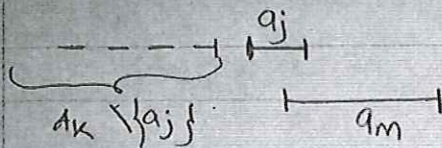 aj
Ak \{aj}
am